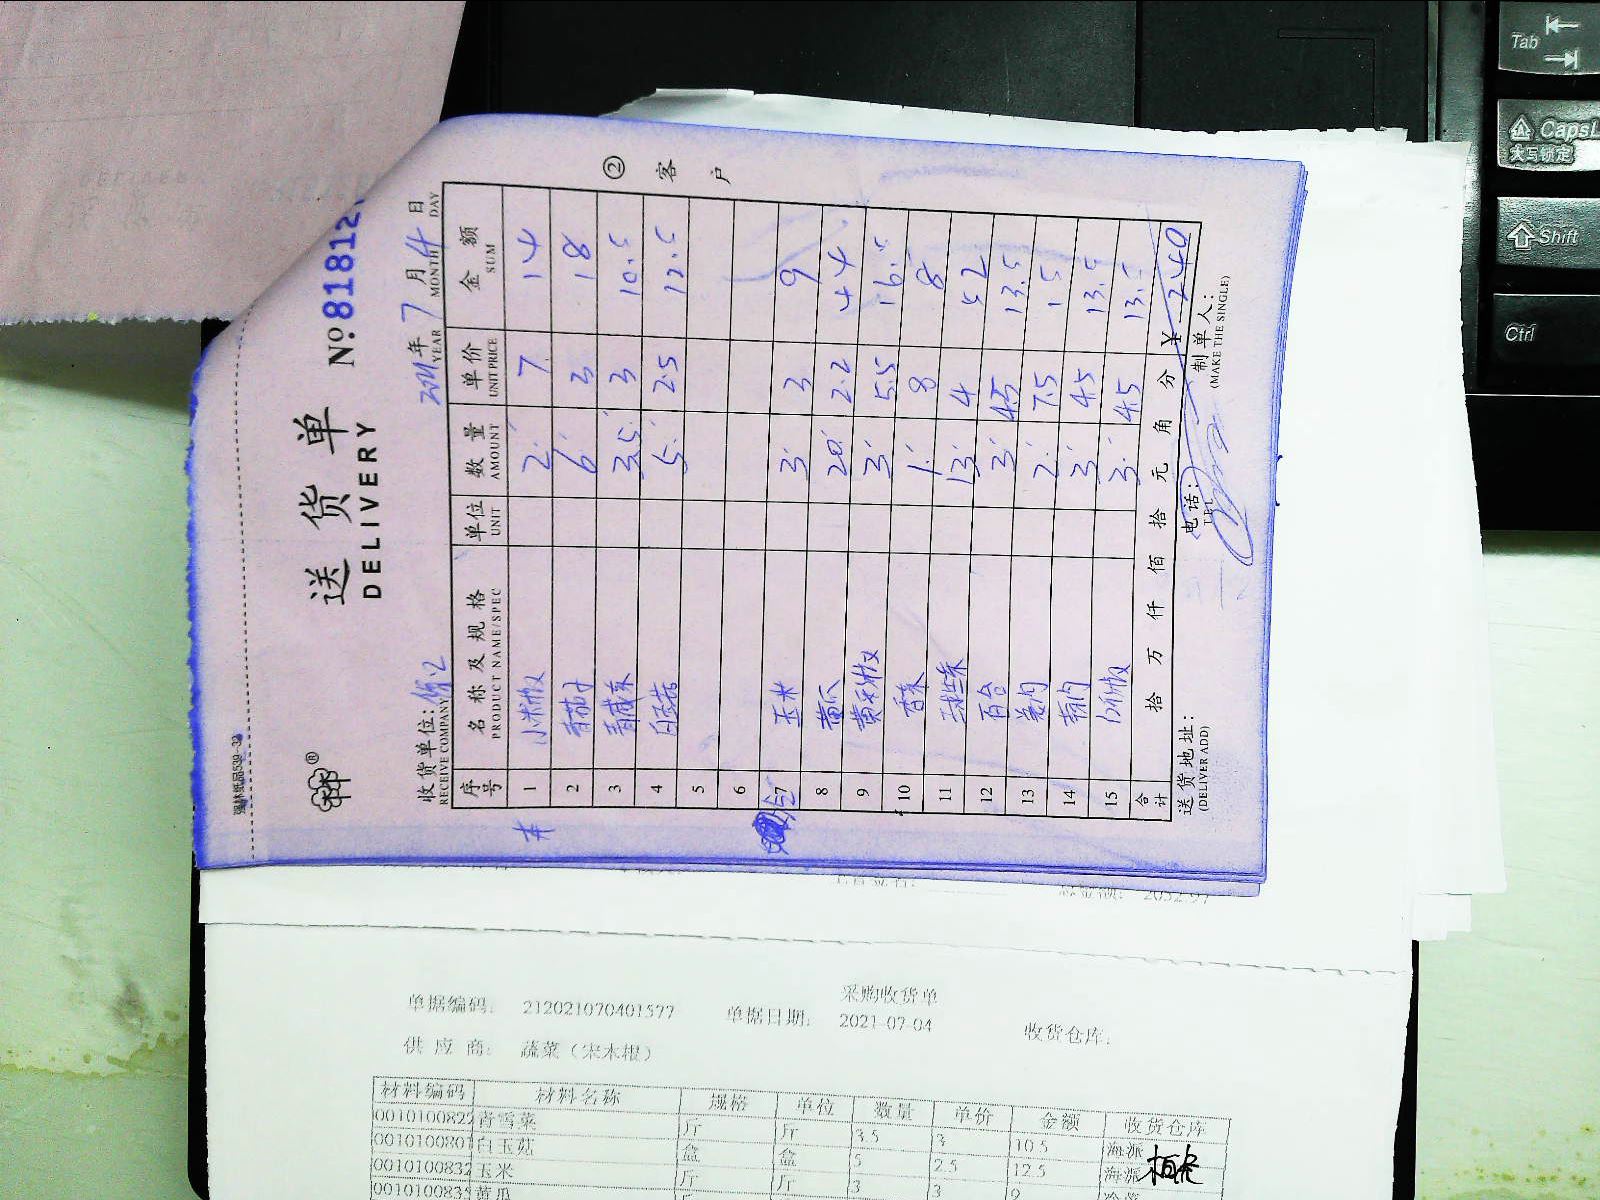 强林纸品539-32
送货单
DELIVERY
No 81812
收货单位:
RECEIVE COMPANY
2021年7月4日
YEAR MONTH DAY
序号 名称及规格 单位 数量 单价 金额
PRODUCT NAME/SPEC UNIT AMOUNT UNIT PRICE SUM
1 小米椒 2 7 14
2 青茄子 6 3 18
3 3.5 3 10.5
4 白玉菇 5 2.5 12.5
5
6
7 玉米 3 3 9
8 黄瓜 20 2.2 44
9 3 5.5 16.5
10 香菜 1 8 8
11 13 4 52
12 百合 3 4.5 13.5
13 2 7.5 15
14 3 4.5 13.5
15 3 4.5 13.5
合计 拾 万 仟 佰 拾 元 角 分 ¥ 240
送货地址:
(DELIVER ADD)
电话:
TEL
制单人:
(MAKE THE SINGLE)
② 客户
Tab
CapsL
大写锁定
Shift
Ctrl
采购收货单
单据编码: 212021070401577 单据日期: 2021-07-04 收货仓库:
供应商: 蔬菜(宋木根)
材料编码 材料名称 规格 单位 数量 单价 金额 收货仓库
0010100822 青雪菜 斤 斤 3.5 3 10.5 海派
0010100801 白玉菇 盒 盒 5 2.5 12.5 海派
0010100832 玉米 斤 斤 3 3 9
001010083 黄瓜